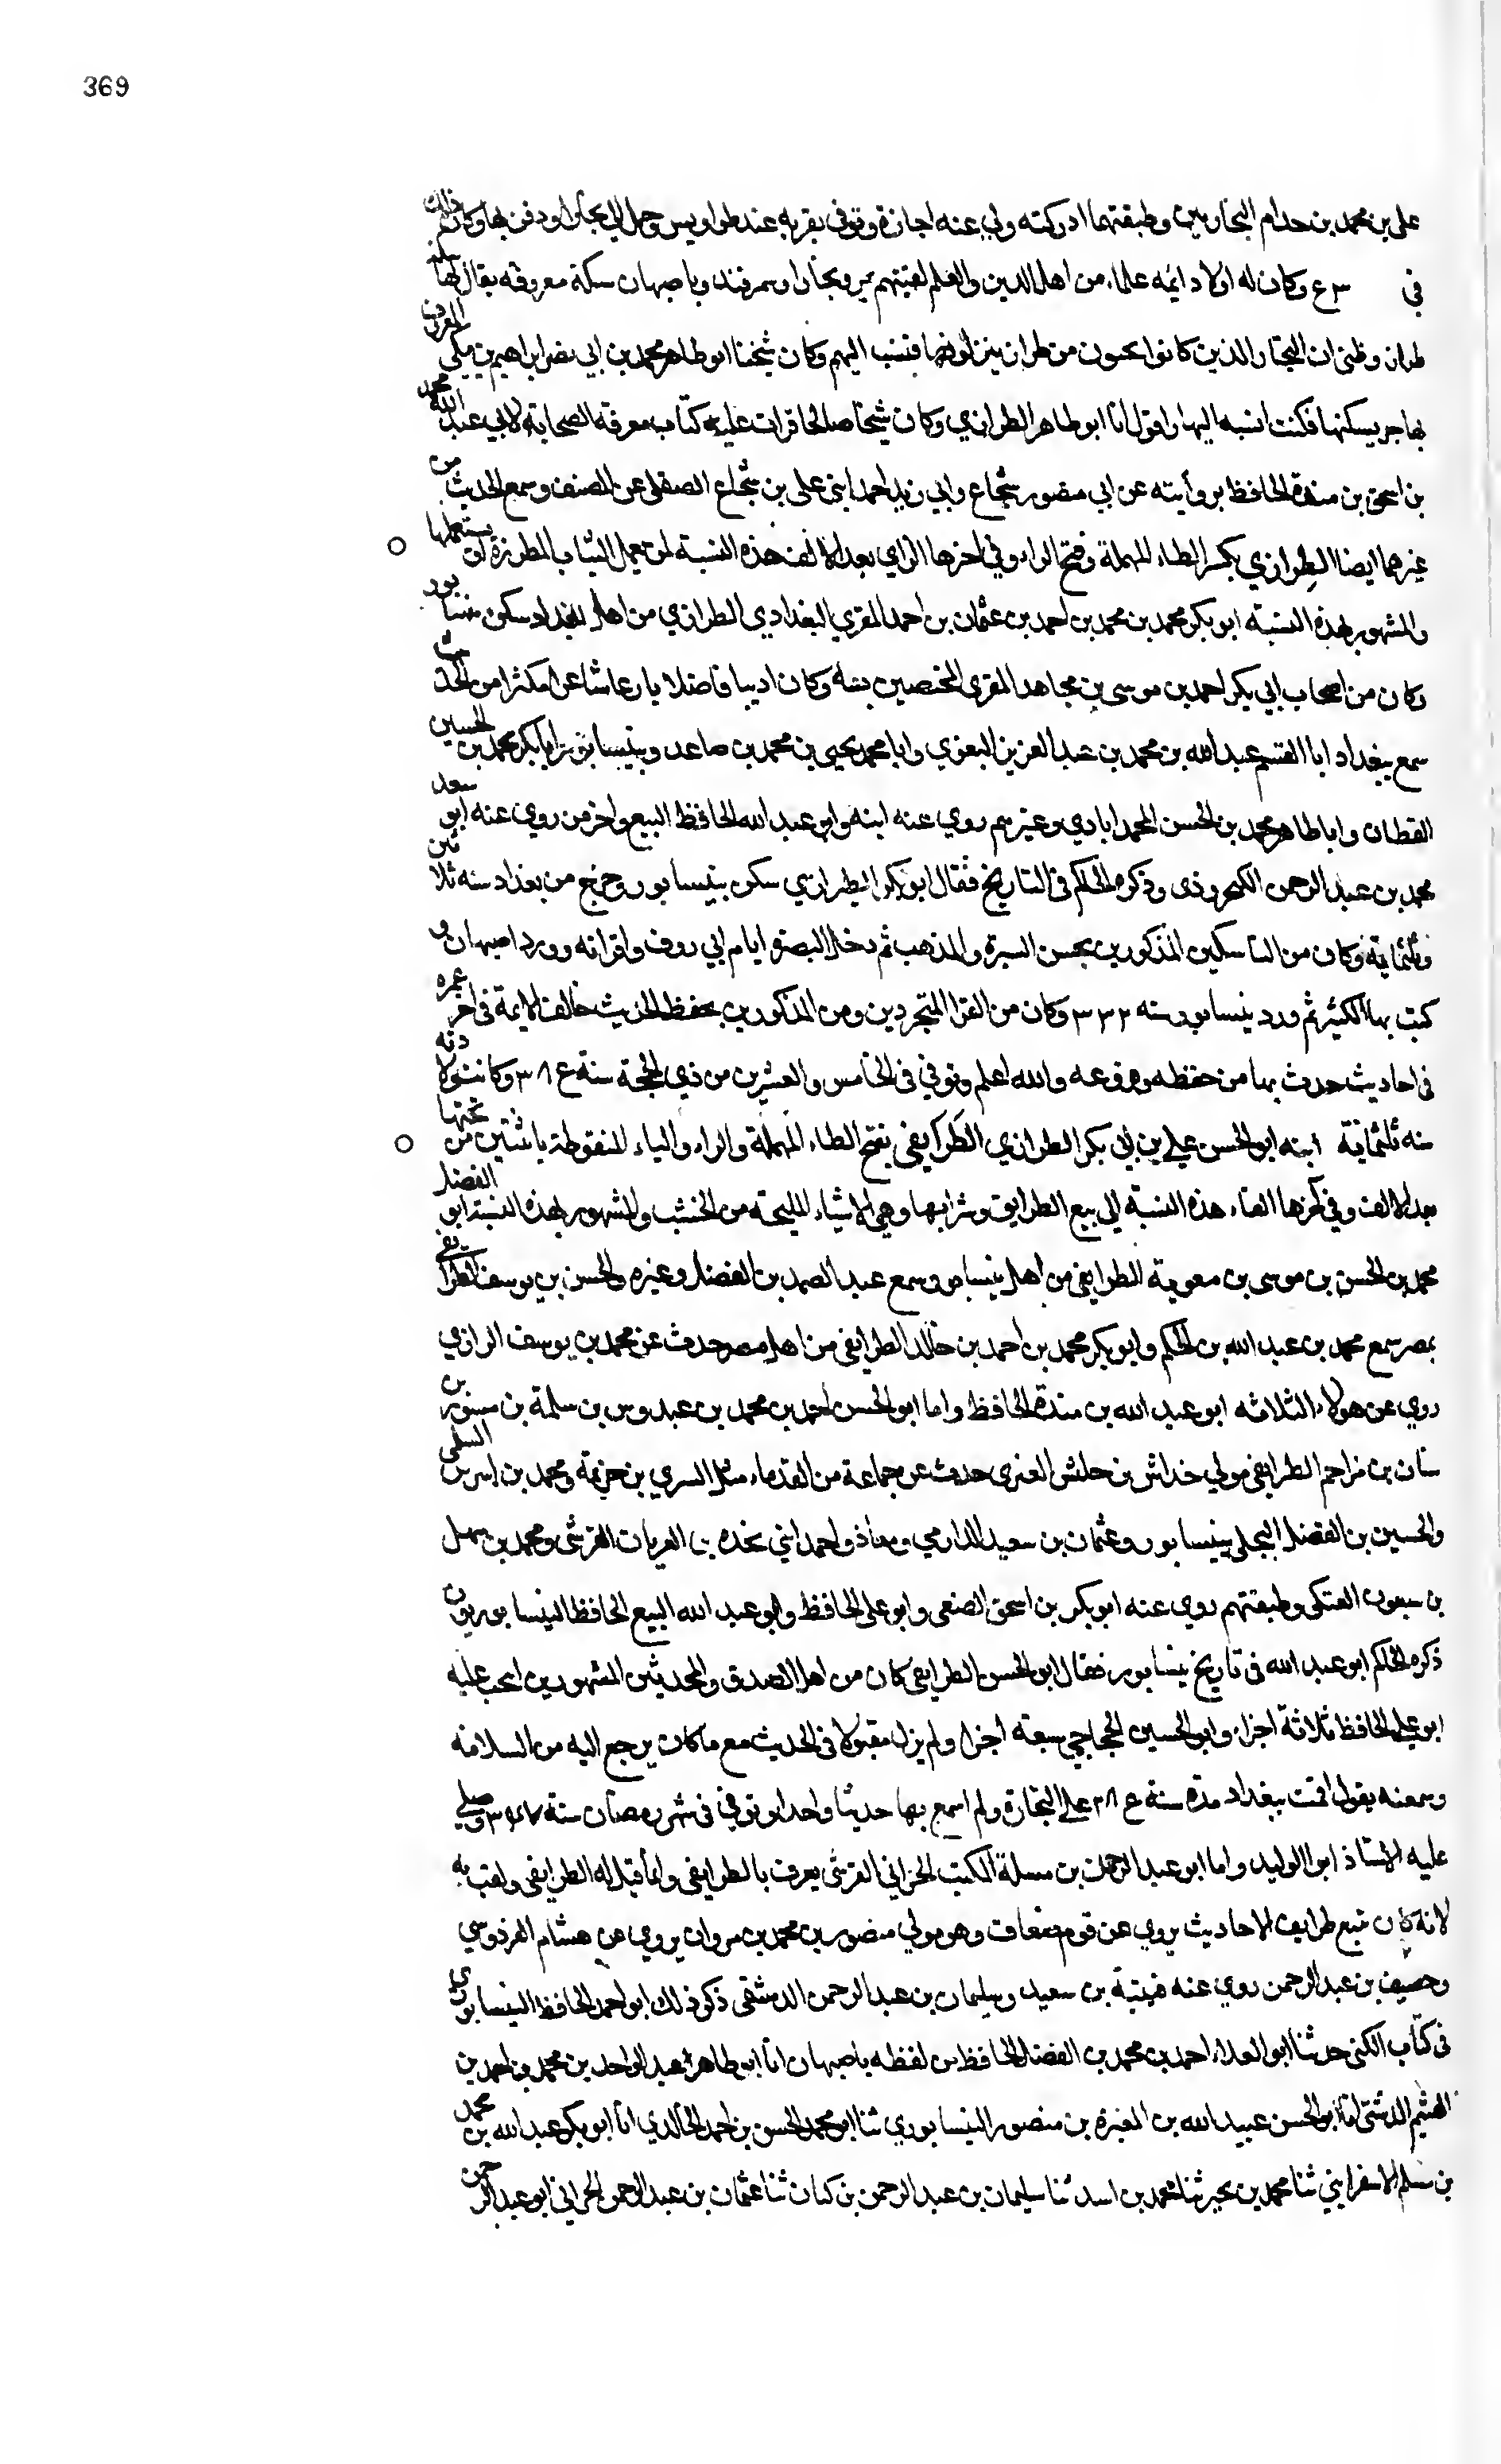 369
علي بن محمد بن حدام البخاريين وطبقتهما ادركته ولي عنه اجازة وتوفي بقربه عند طواويس وحمل الي بخارا ودفن بها وكان ذلك
في ع٣ وكان له اولاد ائمه علماء من اهل الدين والعلم لقيتهم بمرو وبخارا وسمرقند وباصبهان سكة معروفه يقال لها سكة
طراز وظني ان التجار الذين كانوا يحيون من طراز ينزلونها فنسب اليهم وكان شيخنا ابو طاهر محمد بن ابي نصر ابراهيم بن مكي المعروف
بهاجر يسكنها فكنت انسبه اليها واقول انا ابو طاهر الطرازي وكان شيخا صالحا قرات عليه كتاب معرفة الصحابة لابي عبد الله محمد
بن اسحق بن مندة الحافظ بروأيته عن ابي منصور شجاع وابي زيد احمد ابني علي بن شجاع الصقلي عن المصنف وسمع الحديث من
غيرهما ايضا الطرازي بكسر الطاء المهملة وفتح الراء وفي اخرها الزاي بعد الالف هذه النسبة لمن يعمل الثياب المطرزة او يستعملها
والمشهور بهذه النسبة ابو بكر محمد بن محمد بن احمد بن عثمان بن احمد المقري البغدادي الطرازي من اهل بغداد سكن نيسابور
وكان من اصحاب ابي بكر احمد بن موسى بن مجاهد المقري المختصين به وكان اديبا فاضلا بارعا شاعرا مكثرا من الحديث
سمع ببغداد ابا القسم عبد الله بن محمد بن عبد العزيز البغوي وابا محمد يحيى بن محمد بن صاعد وبنيسابور ابا بكر محمد بن الحسين
القطان وابا طاهر محمد بن الحسن المحمدابادي وغيرهم روي عنه ابنه وابو عبد الله الحافظ البيع واخر من روي عنه ابو سعد
محمد بن عبد الرحمن الكنجروذي وذكره الحاكم في التاريخ فقال ابو بكر الطرازي سكن بنيسابور وخرج من بغداد سنه ثلاثين
وثلثماية وكان من الناسكين المذكورين بحسن السيرة والمذهب ثم دخل البصرة ايام ابي روق واقرانه وورد اصبهان و
كتب بها الكثير ثم ورد نيسابور سنه ٣٣٢ وكان من القرا المتجردين ومن المذكورين بحفظ الحديث خالف الايمة في اخر عمره
في احاديث حدث بها من حفظه والله اعلم وتوفي في الخامس والعشرين من ذي الحجة سنة ع٣٨ وكانت ولادته
سنه ثلثماية ابنه ابو الحسن علي بن ابي بكر الطرازي الطرايفي بفتح الطاء المهملة والراء والياء المنقوطة باثنتين من تحتها
بعد الالف وفي آخرها الفاء هذه النسبة الي بيع الطرايف وشرايها وهي الاشياء المليحة من الخشب والمشهور بهذه النسبة ابو الفضل
محمد بن الحسن بن موسى بن معوية الطرايفي من اهل نيسابور سمع عبد الصمد بن الفضل وغيره والحسن بن يوسف الطرايفي
بمصر سمع محمد بن عبد الله بن الحكم وابو بكر محمد بن احمد بن خالد الطرايفي من اهل مصر حدث عن محمد بن يوسف الرازي
روي عن هولاء الثلاثه ابو عبد الله بن مندة الحافظ واما ابو الحسن احمد بن محمد بن عبدوس بن سلمة بن بن
سنان بن مزاحم الطرايفي مولي خداش بن حلش العنزي حدث عن جماعة من القدماء مثل السري بن خزيمة ومحمد بن اسرس السلمي
والحسين بن الفضل البجلي بنيسابور وعثمان بن سعيد الدارمي ومعاذ واحمد ابني نجده بن العريان القرشي ومحمد بن سهل
بن العتكي وطبقتهم روي عنه ابو بكر بن اسحق الصبغي وابو علي الحافظ وابو عبد الله البيع الحافظ النيسابوريون
ذكره الحاكم ابو عبد الله في تاريخ نيسابور فقال ابو الحسن الطرايفي كان من اهل الصدق والمحدثين المشهورين انتخب عليه
ابو علي الحافظ ثلاثة اجزاء وابو الحسين الحجاجي سبعة اجزا ولم يزل مقبولا في الحديث مع ما كان يرجع اليه من السلامة
وسمعته يقول اقمت ببغداد مدة سنة ع٢٨ علي التجارة ولم اسمع بها حديثا واحدا وتوفي في شهر رمضان سنة وصلي
عليه الاستاذ ابو الوليد واما ابو عبد الرحمان بن مسلمة المكتب الحراني القرشي يعرف بالطرايفي وانما قيل له الطرايفي ولقب به
لانه كان يتبع طرايف الاحاديث يروي عن قوم ضعاف وهو مولي منصور بن محمد بن مروان يروي عن هشام الفردوسي
وخصيف بن عبد الرحمن روي عنه قتيبة بن سعيد وسليمان بن عبد الرحمن الدمشقي ذكر ذلك ابو احمد الحافظ النيسابوري
في كتاب الكنى حدثنا ابو العلاء احمد بن محمد بن الفضل الحافظ من لفظه باصبهان انا ابو طاهر عبد الواحد بن محمد بن احمد بن
الهثيم الدشتي انا ابو الحسن عبيد الله بن المغيرة بن منصور النيسابوري ثنا ابو محمد الحسن بن احمد الخالدي انا ابو بكر عبد الله بن محمد
بن مسلم الاسفرايني ثنا محمد بن ثنا محمد بن اسد ثنا سليمان بن عبد الرحمن بن كنان ثنا عثمان بن عبد الرحمن الحراني ابو عبد الرحمن